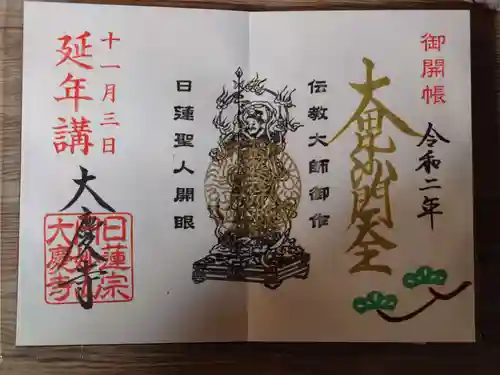 御開帳
令和二年
大毘沙門天
伝教大師御作
日蓮聖人開眼
十一月三日
延年講
大慶寺
日蓮宗
大慶寺